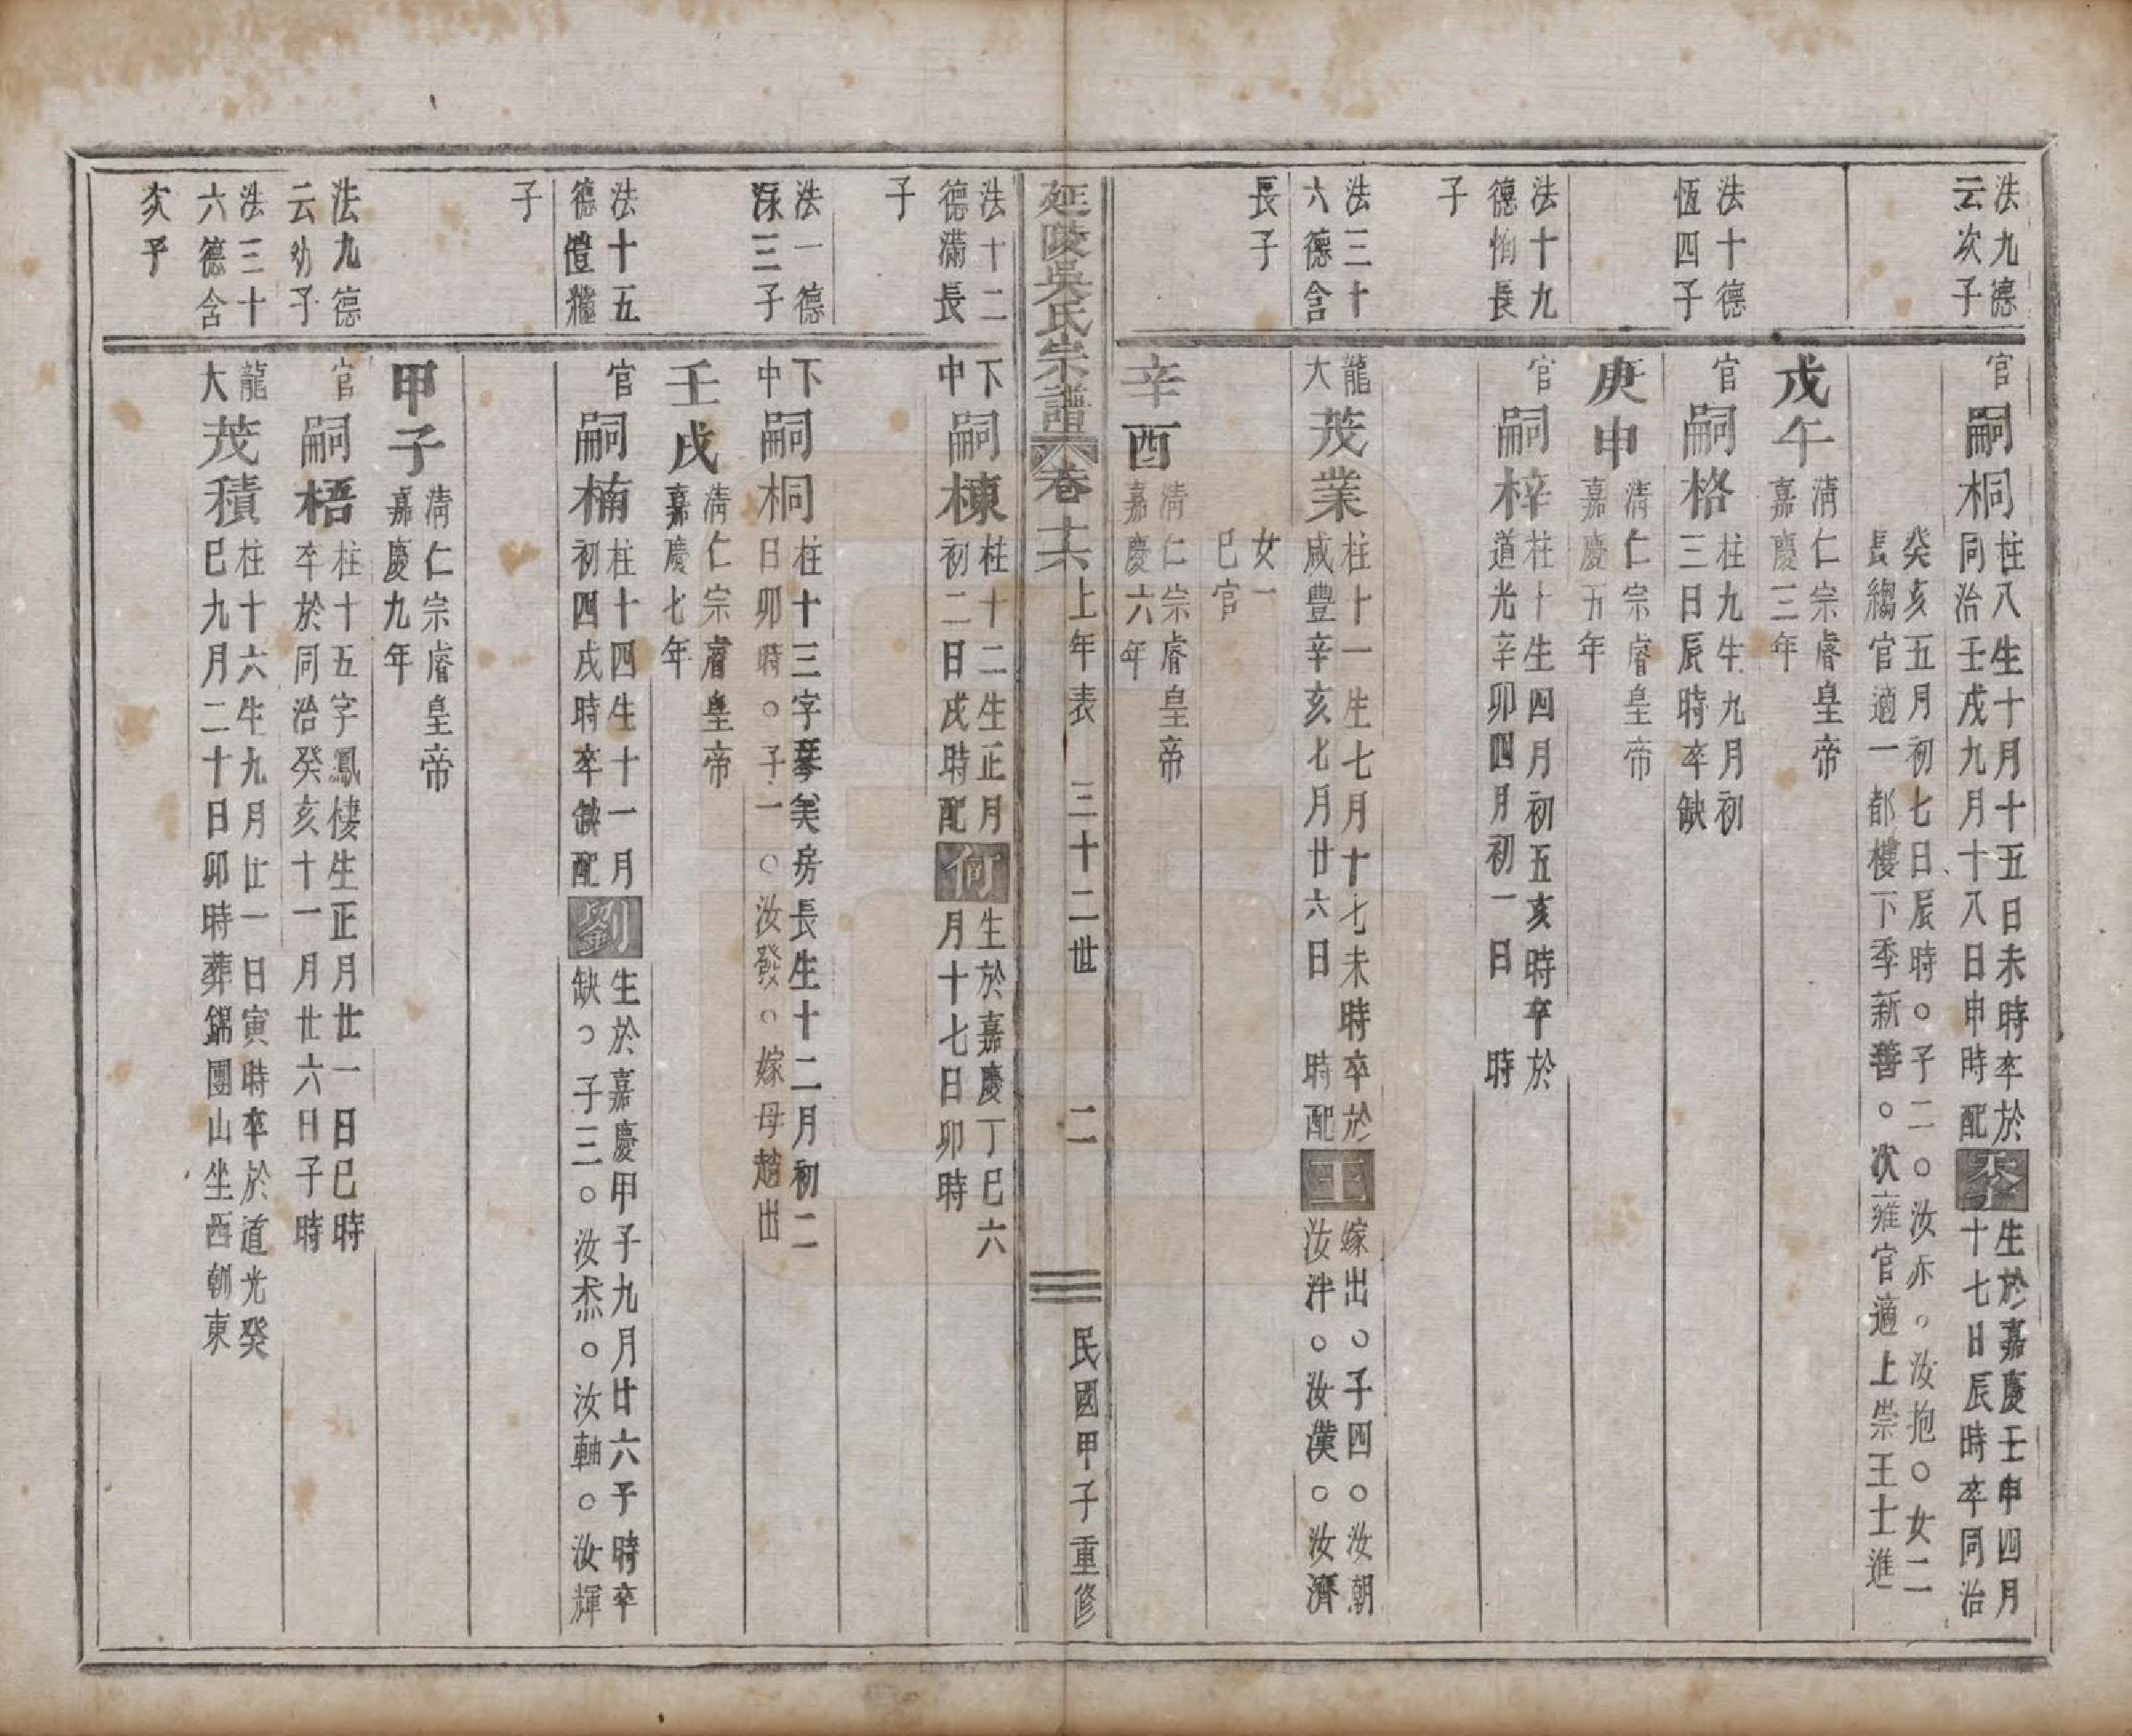 法九德
云次子
官
嗣桐
柱八生十月十五日未時卒於
同治壬戌九月十八日申時配
生於嘉慶壬申四月
十七日辰時卒同治
癸亥五月初七日辰時○子二○汝赤○汝抱○女二
長縐官適一都樓下季新善○次雍官適上崇王士進
戊午
清仁宗睿皇帝
嘉慶三年
法十德
恆四子
官
嗣格
柱九生九月初
三日辰時卒缺
庚申
清仁宗睿皇帝
嘉慶五年
法十九
德恂長
子
官
嗣梓
柱十生四月初五亥時卒於
道光辛卯四月初一日 時
法三十
六德含
長子
龍
大
茂業
柱十一生七月十七未時卒於
咸豐辛亥七月廿六日 時配
王
嫁出○子四○汝朝
汝泮○汝漢○汝濟
女一
巳官
辛酉
清仁宗睿皇帝
嘉慶六年
延陵吳氏宗譜 卷十六上年表 三十二世 二 民國甲子重修
法十二
德滿長
子
下
中
嗣棟
柱十二生正月
初二日戌時配
何
生於嘉慶丁巳六
月十七日卯時
法一德
三子
下
中
嗣桐
柱十三字琴美房長生十二月初二
日卯時○子一○汝發○嫁母趙出
壬戌
清仁宗睿皇帝
嘉慶七年
法十五
德
子
官
嗣楠
柱十四生十一月
初四戌時卒缺配
劉
生於嘉慶甲子九月廿六子時卒
缺○子三○汝烝○汝軸○汝輝
甲子
清仁宗睿皇帝
嘉慶九年
法九德
云幼子
官
嗣梧
柱十五字鳳棲生正月廿一日巳時
卒於同治癸亥十一月廿六日子時
法三十
六德含
次子
龍
大
茂積
柱十六生九月廿一日寅時卒於道光癸
巳九月二十日卯時葬錦團山坐西朝東